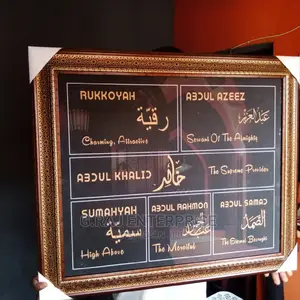 RUKKOYAH
رقيّة
Charming, Attractive
ABDUL AZEEZ
عبدالعزيز
Servant Of The Almighty
ABDUL KHALID
خالد
The Supreme Provider
SUMAHYAH
سمية
High Above
ABDUL RAHMON
عبدالرحمن
The Merciful
ABDUL SAMAD
الصمد
The Eternal Besought
G.RAJ ENTERPRISE